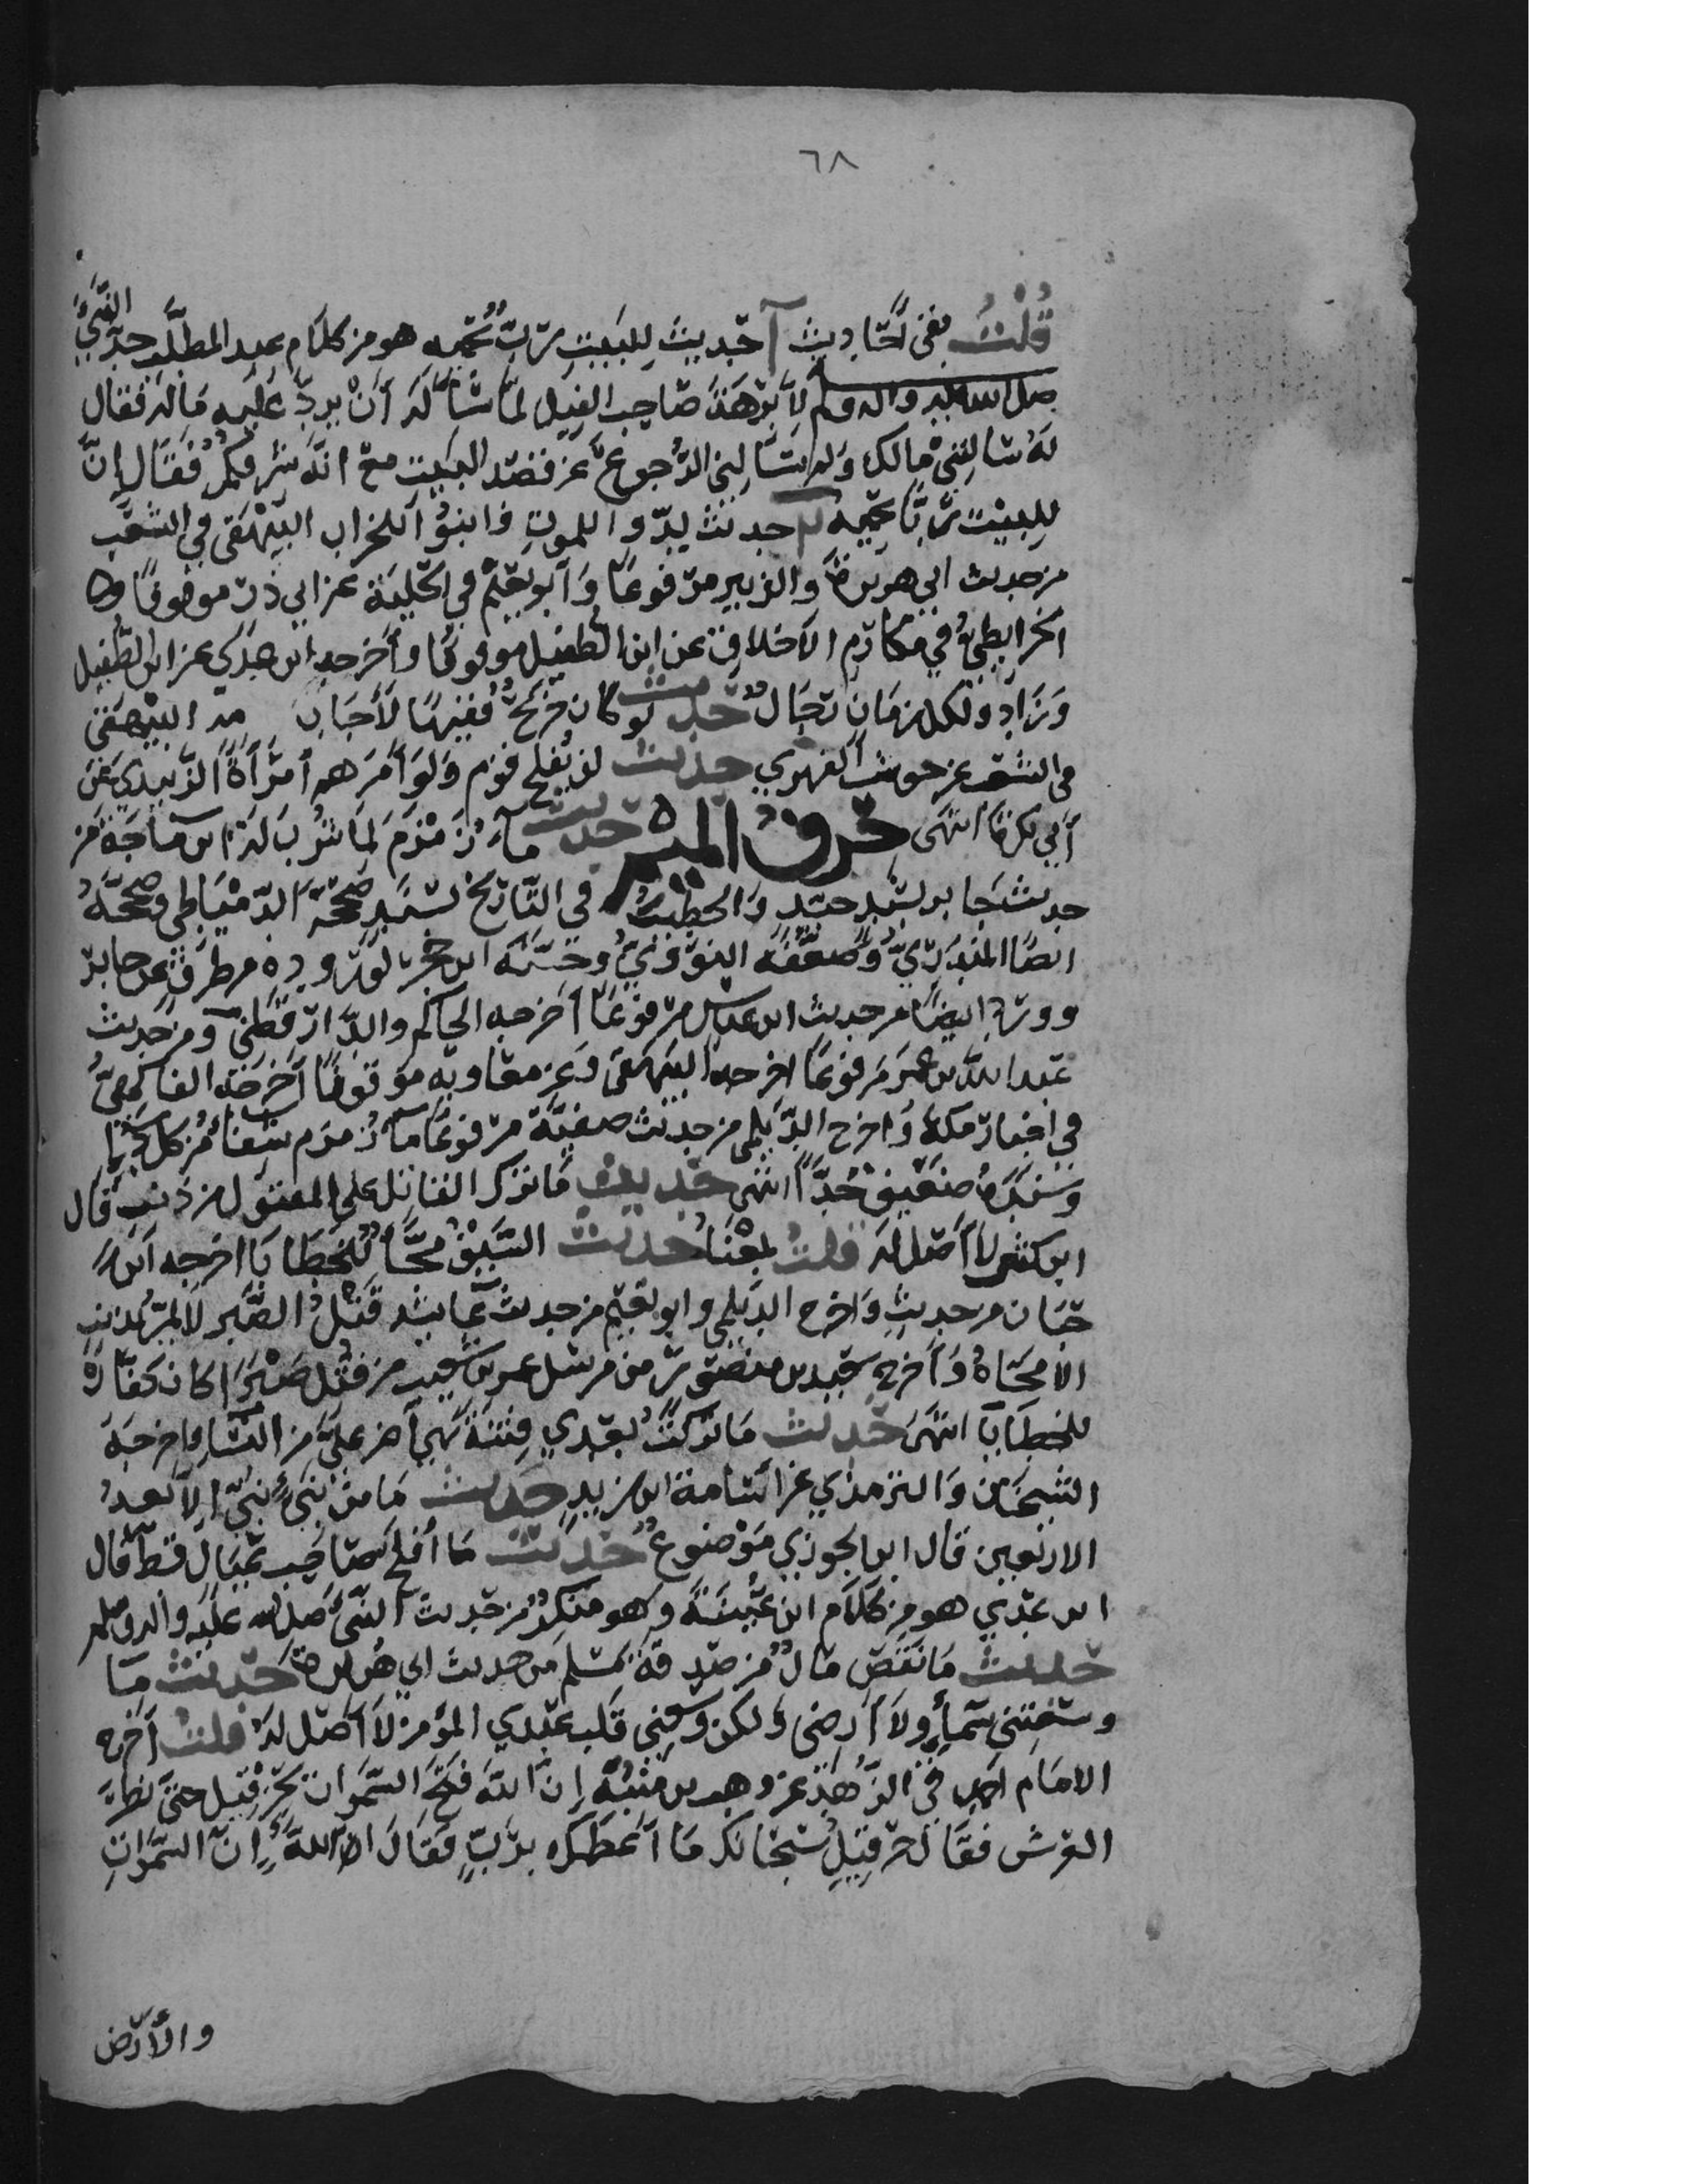 ٦٨
قلتُ بقي أحاديث حديث للبيت ربّ يحميه هو من كلام عبد المطلب جدّ النبي
صلى الله عليه واله وسلم لأبرهة صاحب الفيل لما سأله أن يردّ عليه ماله فقال
له سالتني مالك ولم تسالني الرجوع عن قصد البيت مع انه شرفكم فقال إنّ
للبيت ربًّا يحميه حديث لدوا للموت وابنوا للخراب البيهقي في الشعب
من حديث ابي هريرة والزبير مرفوعًا وأبو نعيم في الحلية عن ابي ذر موقوفًا و
الخرايطي في مكارم الاخلاق عن ابن الطفيل موقوفًا وأخرجه ابن عدي عن ابن الطفيل
وزاد ولكل زمان رجالٌ حديث لو كان جريج فقيهًا لأجاب البيهقي
في الشعب عن حوشب الفهري حديث لن يفلح قوم ولوا أمرهم أمرأة الزبيدي عن
أبي بكرة انتهى حرف الميم حديث مآء زمزم لما شرب له ابن ماجة من
حديث جابر بسند جيد والخطيب في التاريخ بسند صححه الدمياطي وصححهُ
ايضًا المنذري وضعفه النووي وحسنه ابن حجر لوروده من طرق عن جابر
وورد ايضًا من حديث ابن عباس مرفوعًا أخرجه الحاكم والدارقطني ومن حديث
عبد الله بن عمر مرفوعًا اخرجه البيهقي وعن معاويه موقوفًا أخرجه الفاكهي
في اخبار مكة واخرج الديلمي من حديث صفية مرفوعًا مآ زمزم شفاء من كل داء
وسنده ضعيف جدًّا انتهى حديث ما ترك القاتل على المقتول من ذنب قال
ابن كثير لا أصل له قلت بمعناه حديث السيف محّاء للخطايا اخرجه ابن
حبان من حديث واخرج الديلمي وابو نعيم من حديث عايشه قتل الصبر لا يمرّ بذنب
الا محاهُ وأخرج سعيد بن منصور من مرسل عمر بن شعيب من قتل صبرًا كان كفارة
للخطايا انتهى حديث ما تركت بعدي فتنة هي أضر على من النساء اخرجه
الشيخان والترمذي عن اسامة ابن زيد حديث ما من نبيّ نبّئ الا بعد
الاربعين قال ابن الجوزي موضوع حديث ما أفلح صاحب عيال قط قال
ابن عدي هو من كلام ابن عيينة وهو منكر من حديث النبي صلى الله عليه واله وسلم
حديث ما نقص مالٌ من صدقة مسلم من حديث ابي هريرة حديث ما
وسعتني سمأي ولا أرضي ولكن وسعني قلب عبدي المؤمن لا أصل له قلت أخرج
الامام احمد في الزهد عن وهب بن منبه إن الله فتح السموات لحزقيل حتى نظر الى
العرش فقال حزقيل سبحانك ما أعظمك يا ربّ فقال الله إنّ السموات
والأرض